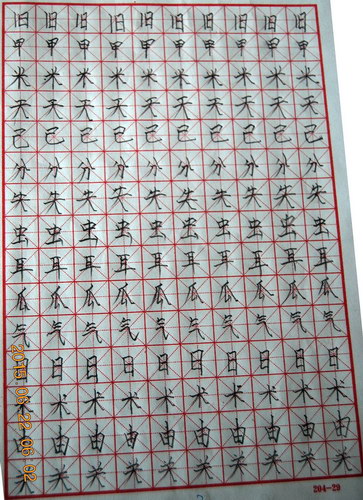 旧旧旧旧旧旧旧旧旧旧
甲甲甲甲甲甲甲甲甲甲
米米米米米米米米米米
天天天天天天天天天天
已已已已已已已已已已
分分分分分分分分分分
失失失失失失失失失失
虫虫虫虫虫虫虫虫虫虫
耳耳耳耳耳耳耳耳耳耳
瓜瓜瓜瓜瓜瓜瓜瓜瓜瓜
气气气气气气气气气气
日日日日日日日日日日
术术术术术术术术术术
由由由由由由由由由由
关关关关关关关关关关
204-29